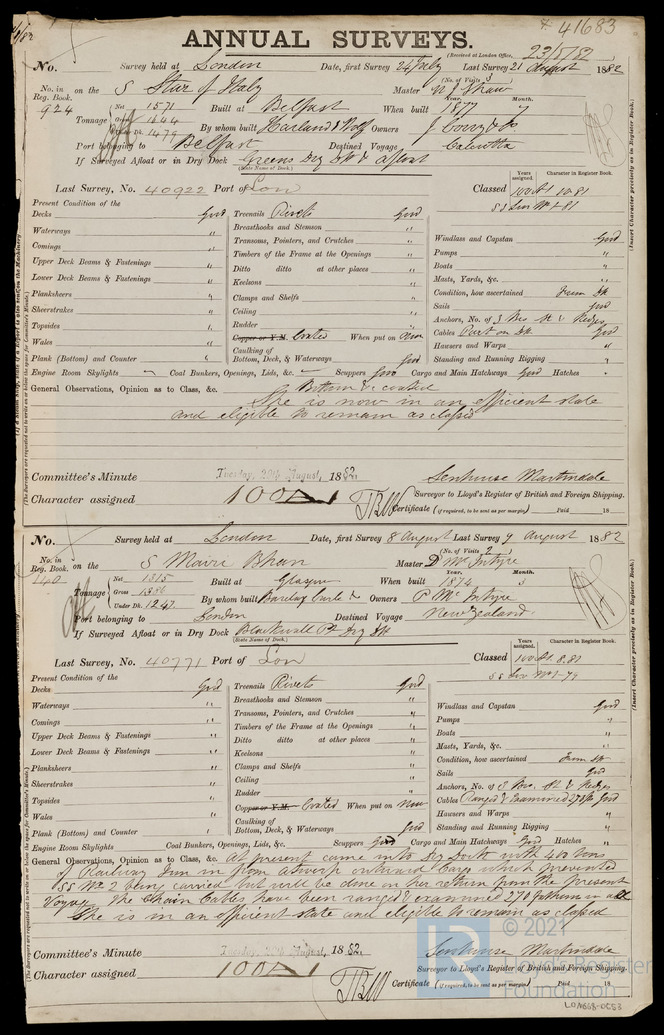 * 41683
ANNUAL SURVEYS.
(Received at London Office, 23/8/82
No. Survey held at London Date, first Survey 24 July Last Survey 21 August 1882
(No. of Visits 3)
No. in Reg. Book. on the S Star of Italy Master W J Shaw
924 Tonnage Net 1571 Gross 1644 Under Dk. 1479 Built at Belfast When built Year. 1877 Month. 7
By whom built Harland & Wolf Owners J Corry & Co
Port belonging to Belfast Destined Voyage Calcutta
If Surveyed Afloat or in Dry Dock Greens Dry Dk & afloat
(State Name of Dock.)
Last Survey, No. 40922 Port of Lon Classed 100A1 10.81
Years assigned. Character in Register Book.
SS Lon No1-81
(Insert Character precisely as in Register Book.)
Present Condition of the
Decks Good
Waterways "
Comings "
Upper Deck Beams & Fastenings "
Lower Deck Beams & Fastenings "
Planksheers "
Sheerstrakes "
Topsides "
Wales "
Plank (Bottom) and Counter "
Treenails Rivets Good
Breasthooks and Stemson "
Transoms, Pointers, and Crutches "
Timbers of the Frame at the Openings "
Ditto ditto at other places "
Keelsons "
Clamps and Shelfs "
Ceiling "
Rudder "
Copper or Y.M. Coated When put on Now
Caulking of Bottom, Deck, & Waterways Good
Windlass and Capstan Good
Pumps "
Boats "
Masts, Yards, &c. "
Condition, how ascertained From Dk
Sails Good
Anchors, No. of 3 Bos St & Kedges
Cables Part on Dk Good
Hausers and Warps "
Standing and Running Rigging "
Engine Room Skylights Coal Bunkers, Openings, Lids, &c. Scuppers Good Cargo and Main Hatchways Good Hatches "
General Observations, Opinion as to Class, &c. Bottom coated
She is now in an efficient state
and eligible to remain as classed
Committee's Minute Tuesday, 29th August, 1882.
Character assigned 100A1
Senhouse Martindale
Surveyor to Lloyd's Register of British and Foreign Shipping.
Certificate (if required, to be sent as per margin) Paid 18
No. Survey held at London Date, first Survey 8 August Last Survey 9 August 1882
(No. of Visits 2)
No. in Reg. Book. on the S Mairi Bhan Master D McIntyre
140 Tonnage Net 1315 Gross 1386 Under Dk. 1247 Built at Glasgow When built Year. 1874 Month. 3
By whom built Barclay Curle & Co Owners P McIntyre
Port belonging to London Destined Voyage New Zealand
If Surveyed Afloat or in Dry Dock Blackwall Pt Dry Dk
(State Name of Dock.)
Last Survey, No. 40771 Port of Lon Classed 100A1 8.81
Years assigned. Character in Register Book.
SS Liv No1-79
(Insert Character precisely as in Register Book.)
Present Condition of the
Decks Good
Waterways "
Comings "
Upper Deck Beams & Fastenings "
Lower Deck Beams & Fastenings "
Planksheers "
Sheerstrakes "
Topsides "
Wales "
Plank (Bottom) and Counter "
Treenails Rivets Good
Breasthooks and Stemson "
Transoms, Pointers, and Crutches "
Timbers of the Frame at the Openings "
Ditto ditto at other places "
Keelsons "
Clamps and Shelfs "
Ceiling "
Rudder "
Copper or Y.M. Coated When put on Now
Caulking of Bottom, Deck, & Waterways Good
Windlass and Capstan Good
Pumps "
Boats "
Masts, Yards, &c. "
Condition, how ascertained From Dk
Sails Good
Anchors, No. of 3 Bos St & Kedges
Cables Ranged & Examined 270 fs Good
Hausers and Warps "
Standing and Running Rigging "
Engine Room Skylights Coal Bunkers, Openings, Lids, &c. Scuppers Good Cargo and Main Hatchways Good Hatches "
General Observations, Opinion as to Class, &c. At present came into Dry Dock with 400 tons
of Railway Iron in from Antwerp outward Cargo which prevented
SS No 2 being carried but will be done on her return from the present
Voyage. The Chain Cables have been ranged & examined 270 fathoms in all
She is in an efficient state and eligible to remain as classed
Committee's Minute Tuesday, 29th August, 1882.
Character assigned 100A1
Senhouse Martindale
Surveyor to Lloyd's Register of British and Foreign Shipping.
Certificate (if required, to be sent as per margin) Paid 18
LR © 2021
Lloyd's Register
Foundation
LON668-0553